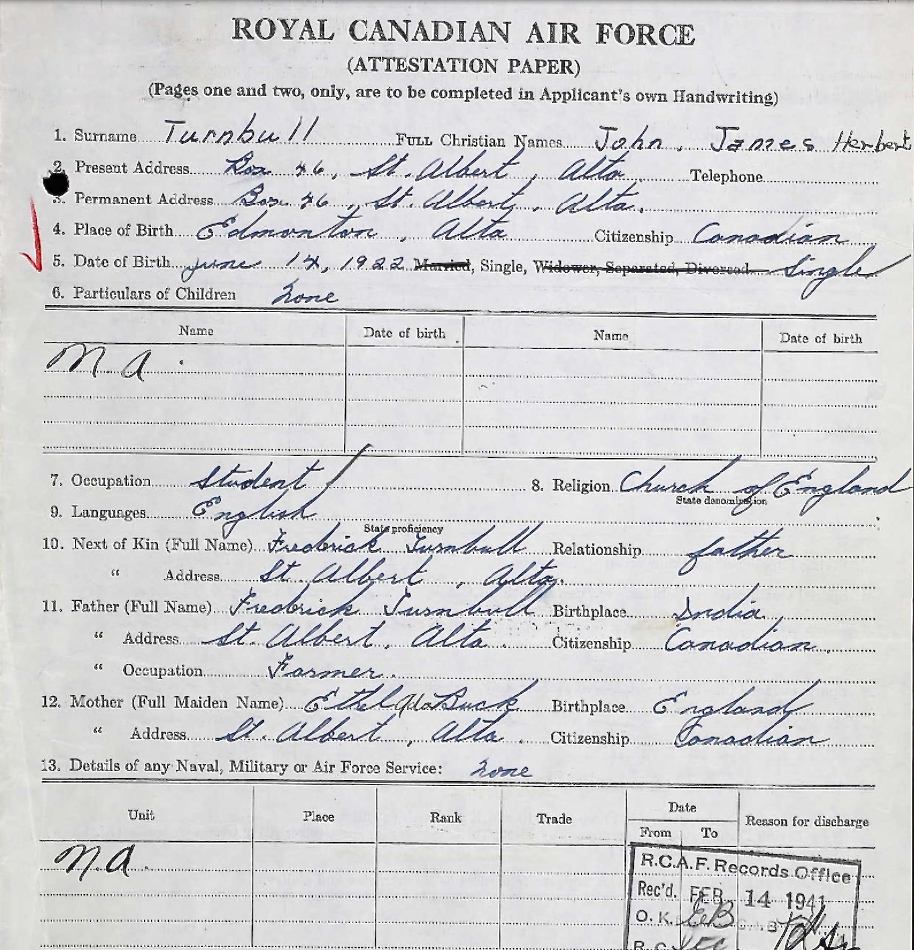 ROYAL CANADIAN AIR FORCE
(ATTESTATION PAPER)
(Pages one and two, only, are to be completed in Applicant's own Handwriting)
1. Surname Turnbull FULL Christian Names John, James Herbert
2. Present Address Box 46, St. Albert, Alta. Telephone
3. Permanent Address Box 46, St. Albert, Alta.
4. Place of Birth Edmonton, Alta Citizenship Canadian
5. Date of Birth June 1922 Married, Single, Widower, Separated, Divorced Single
6. Particulars of Children None
Name Date of birth Name Date of birth
N A.
7. Occupation Student 8. Religion Church of England
State denomination
9. Languages English
State proficiency
10. Next of Kin (Full Name) Frederick Turnbull Relationship father
" Address St. Albert, Alta.
11. Father (Full Name) Frederick Turnbull Birthplace India
" Address St. Albert, Alta. Citizenship Canadian
" Occupation Farmer.
12. Mother (Full Maiden Name) Ethel Buck Birthplace England
" Address St. Albert, Alta. Citizenship Canadian
13. Details of any Naval, Military or Air Force Service: None
Unit Place Rank Trade Date Reason for discharge
From To
N.A.
R.C.A.F. Records Office
Rec'd. FEB 14 1941
O.K. EB
R.C.